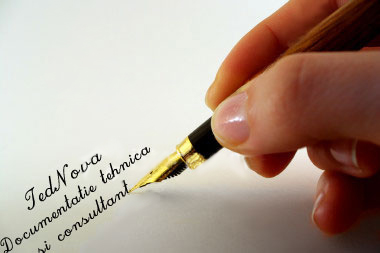 TedNova
Documentatie tehnica
si consultant